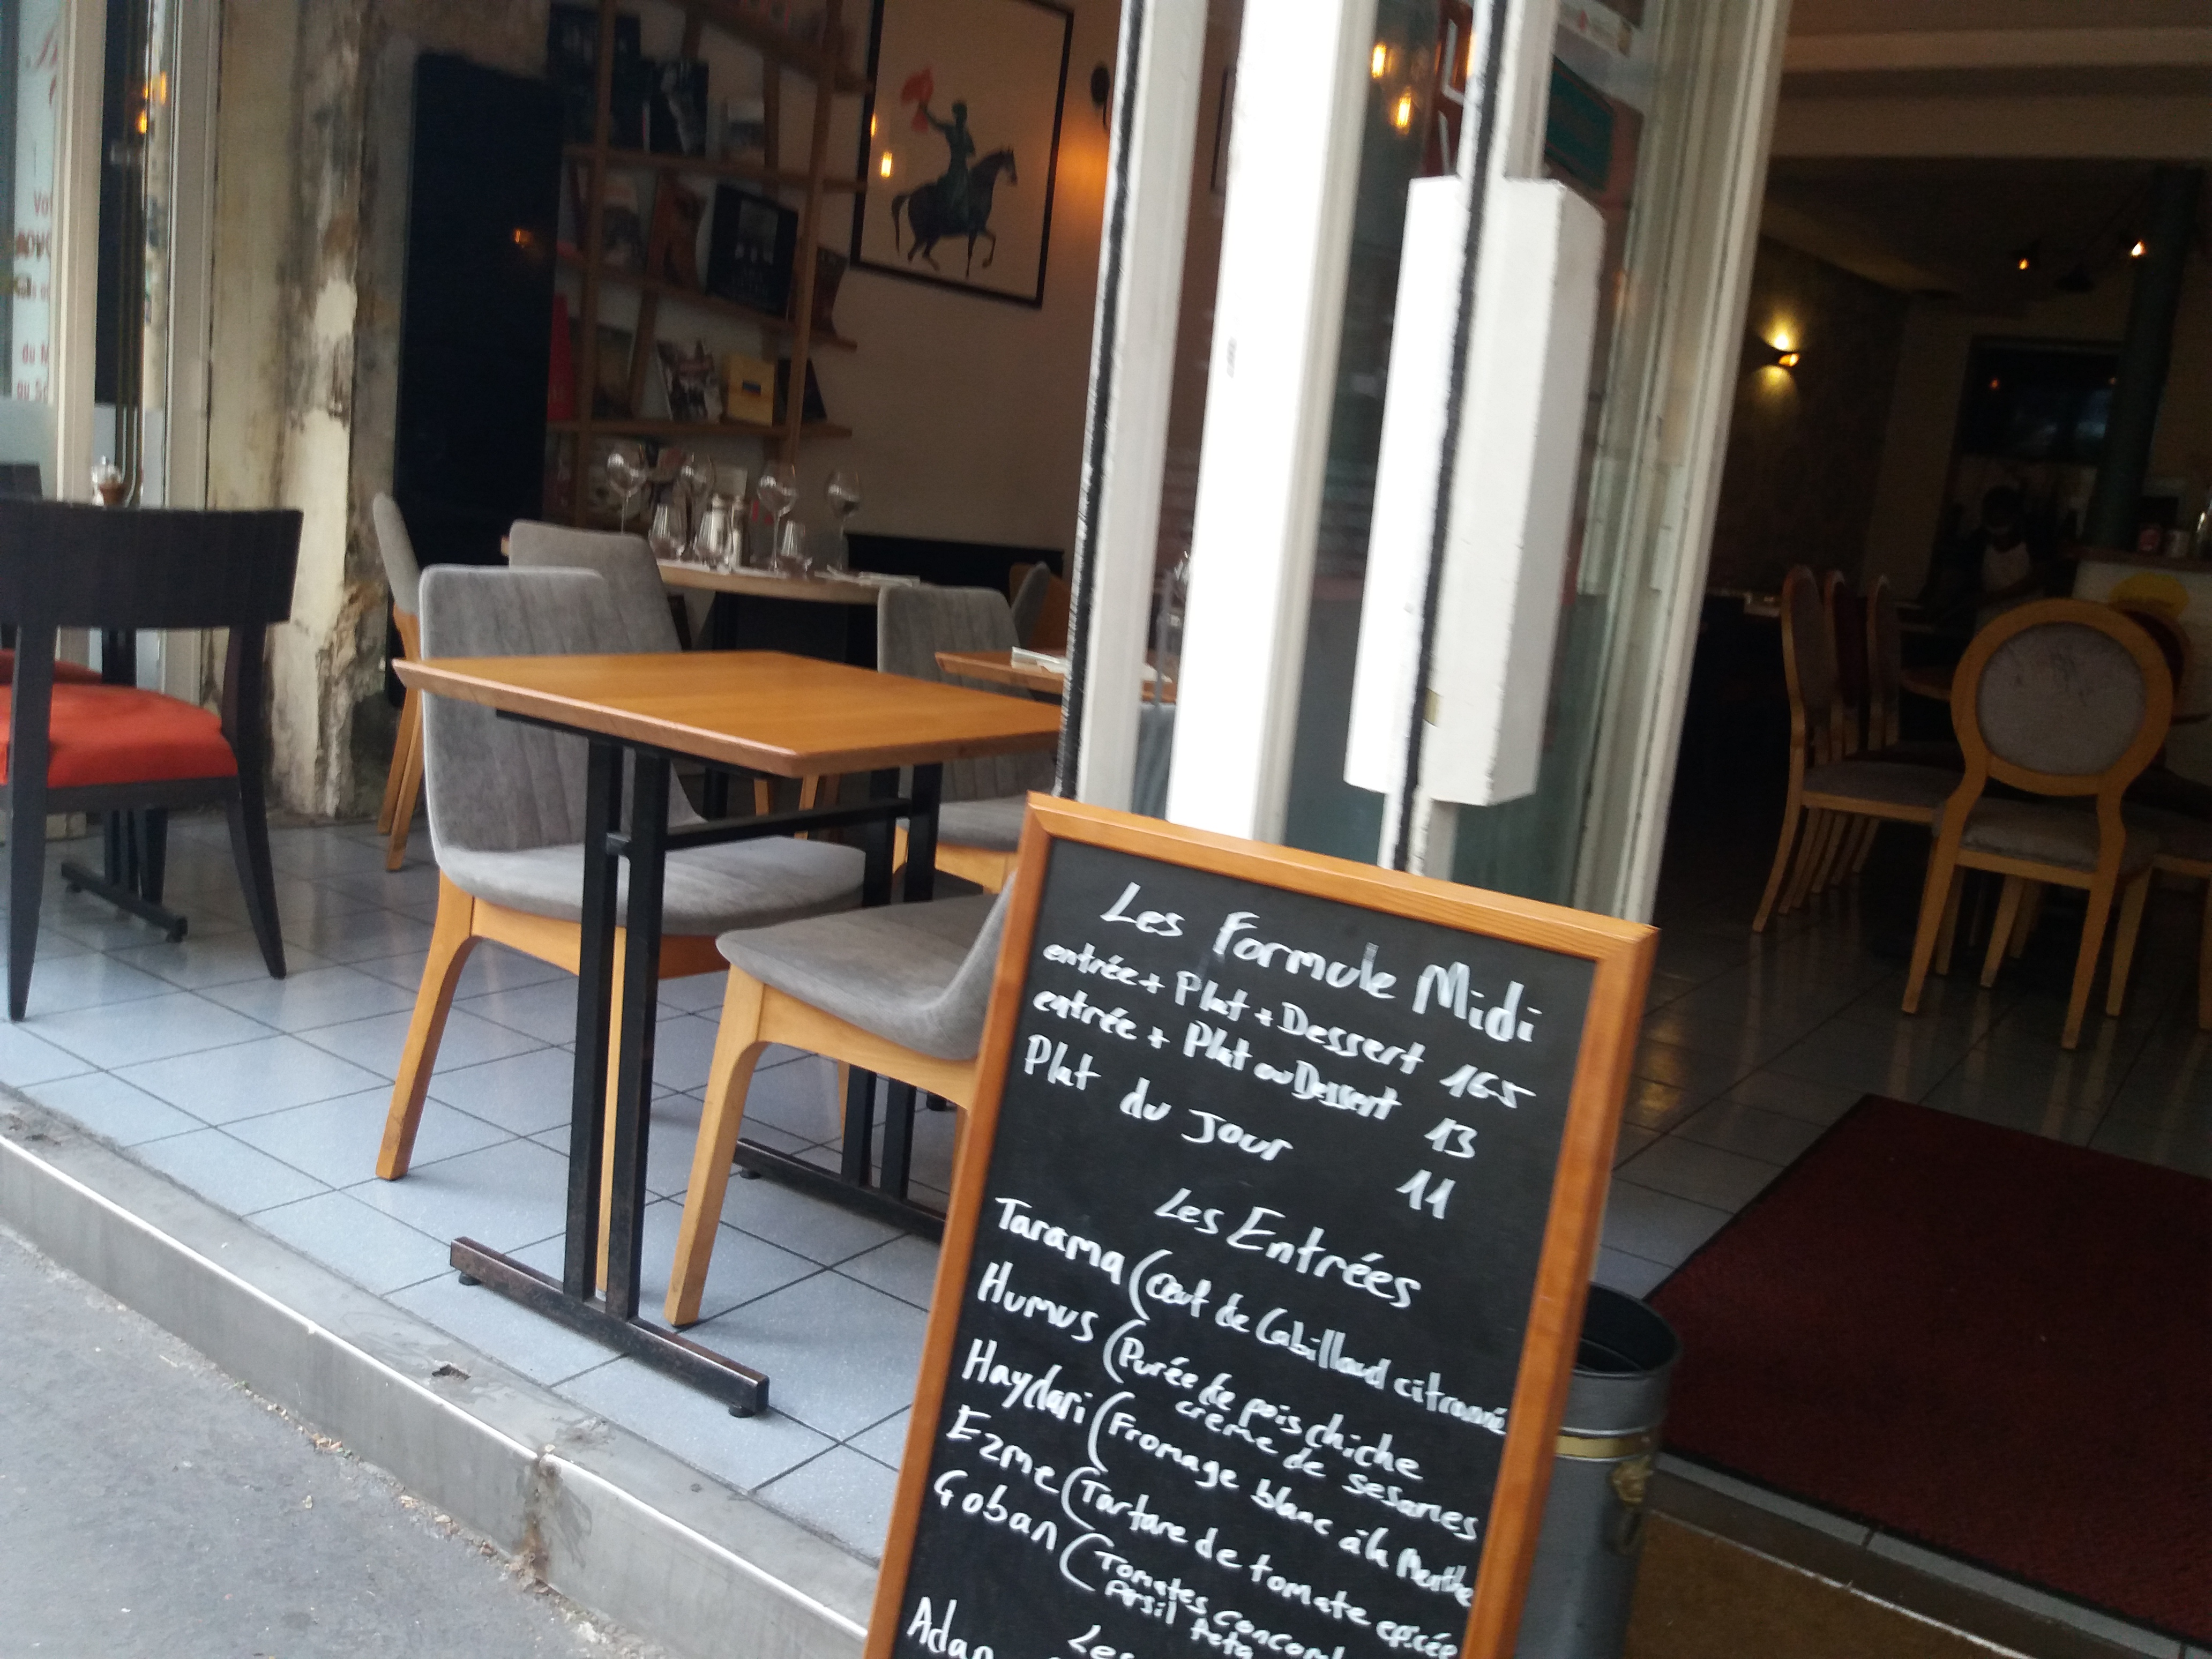 Les Formule Midi
entrée + Plat + Dessert 165
entrée + Plat ou Dessert 13
Plat du Jour 11
Les Entrées
Tarama (Œut de Cabillaud citronné
Humus (Purée de pois chiche
crème de sesames
Haydari (Fromage blanc à la Menthe
Ezme (Tartare de tomate epicée
Çoban (Tomates concomb
Persil feta
Les
Adan
Vo
du M
au Sa